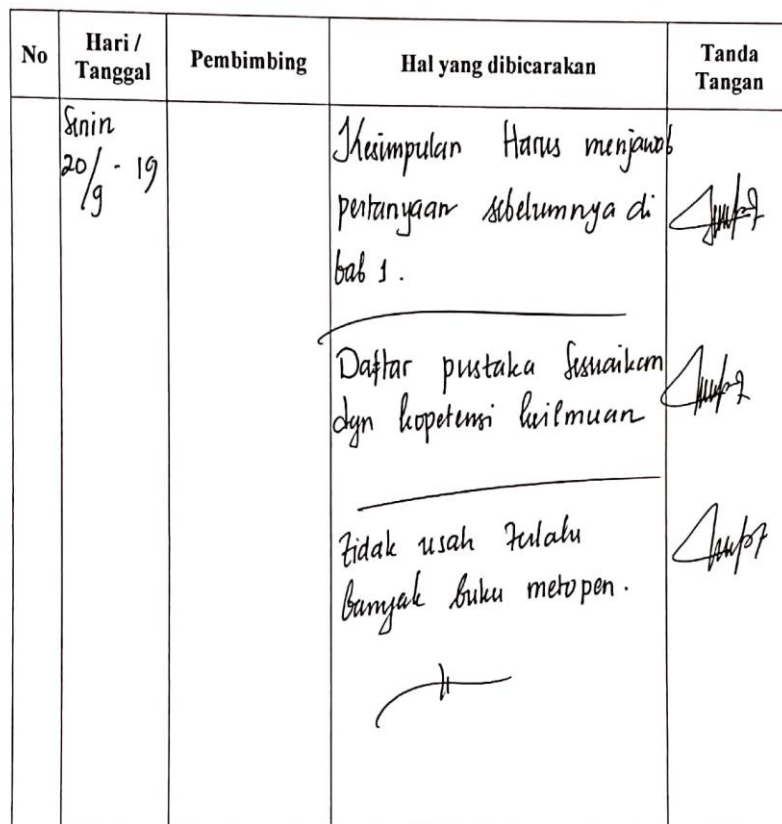 No
Hari /
Tanggal
Pembimbing
Hal yang dibicarakan
Tanda
Tangan
Senin
20/9 - 19
Kesimpulan Harus menjawab
pertanyaan sebelumnya di
bab 1.
Daftar pustaka sesuaikan
dgn kopetensi keilmuan
Tidak usah terlalu
banyak buku metopen.